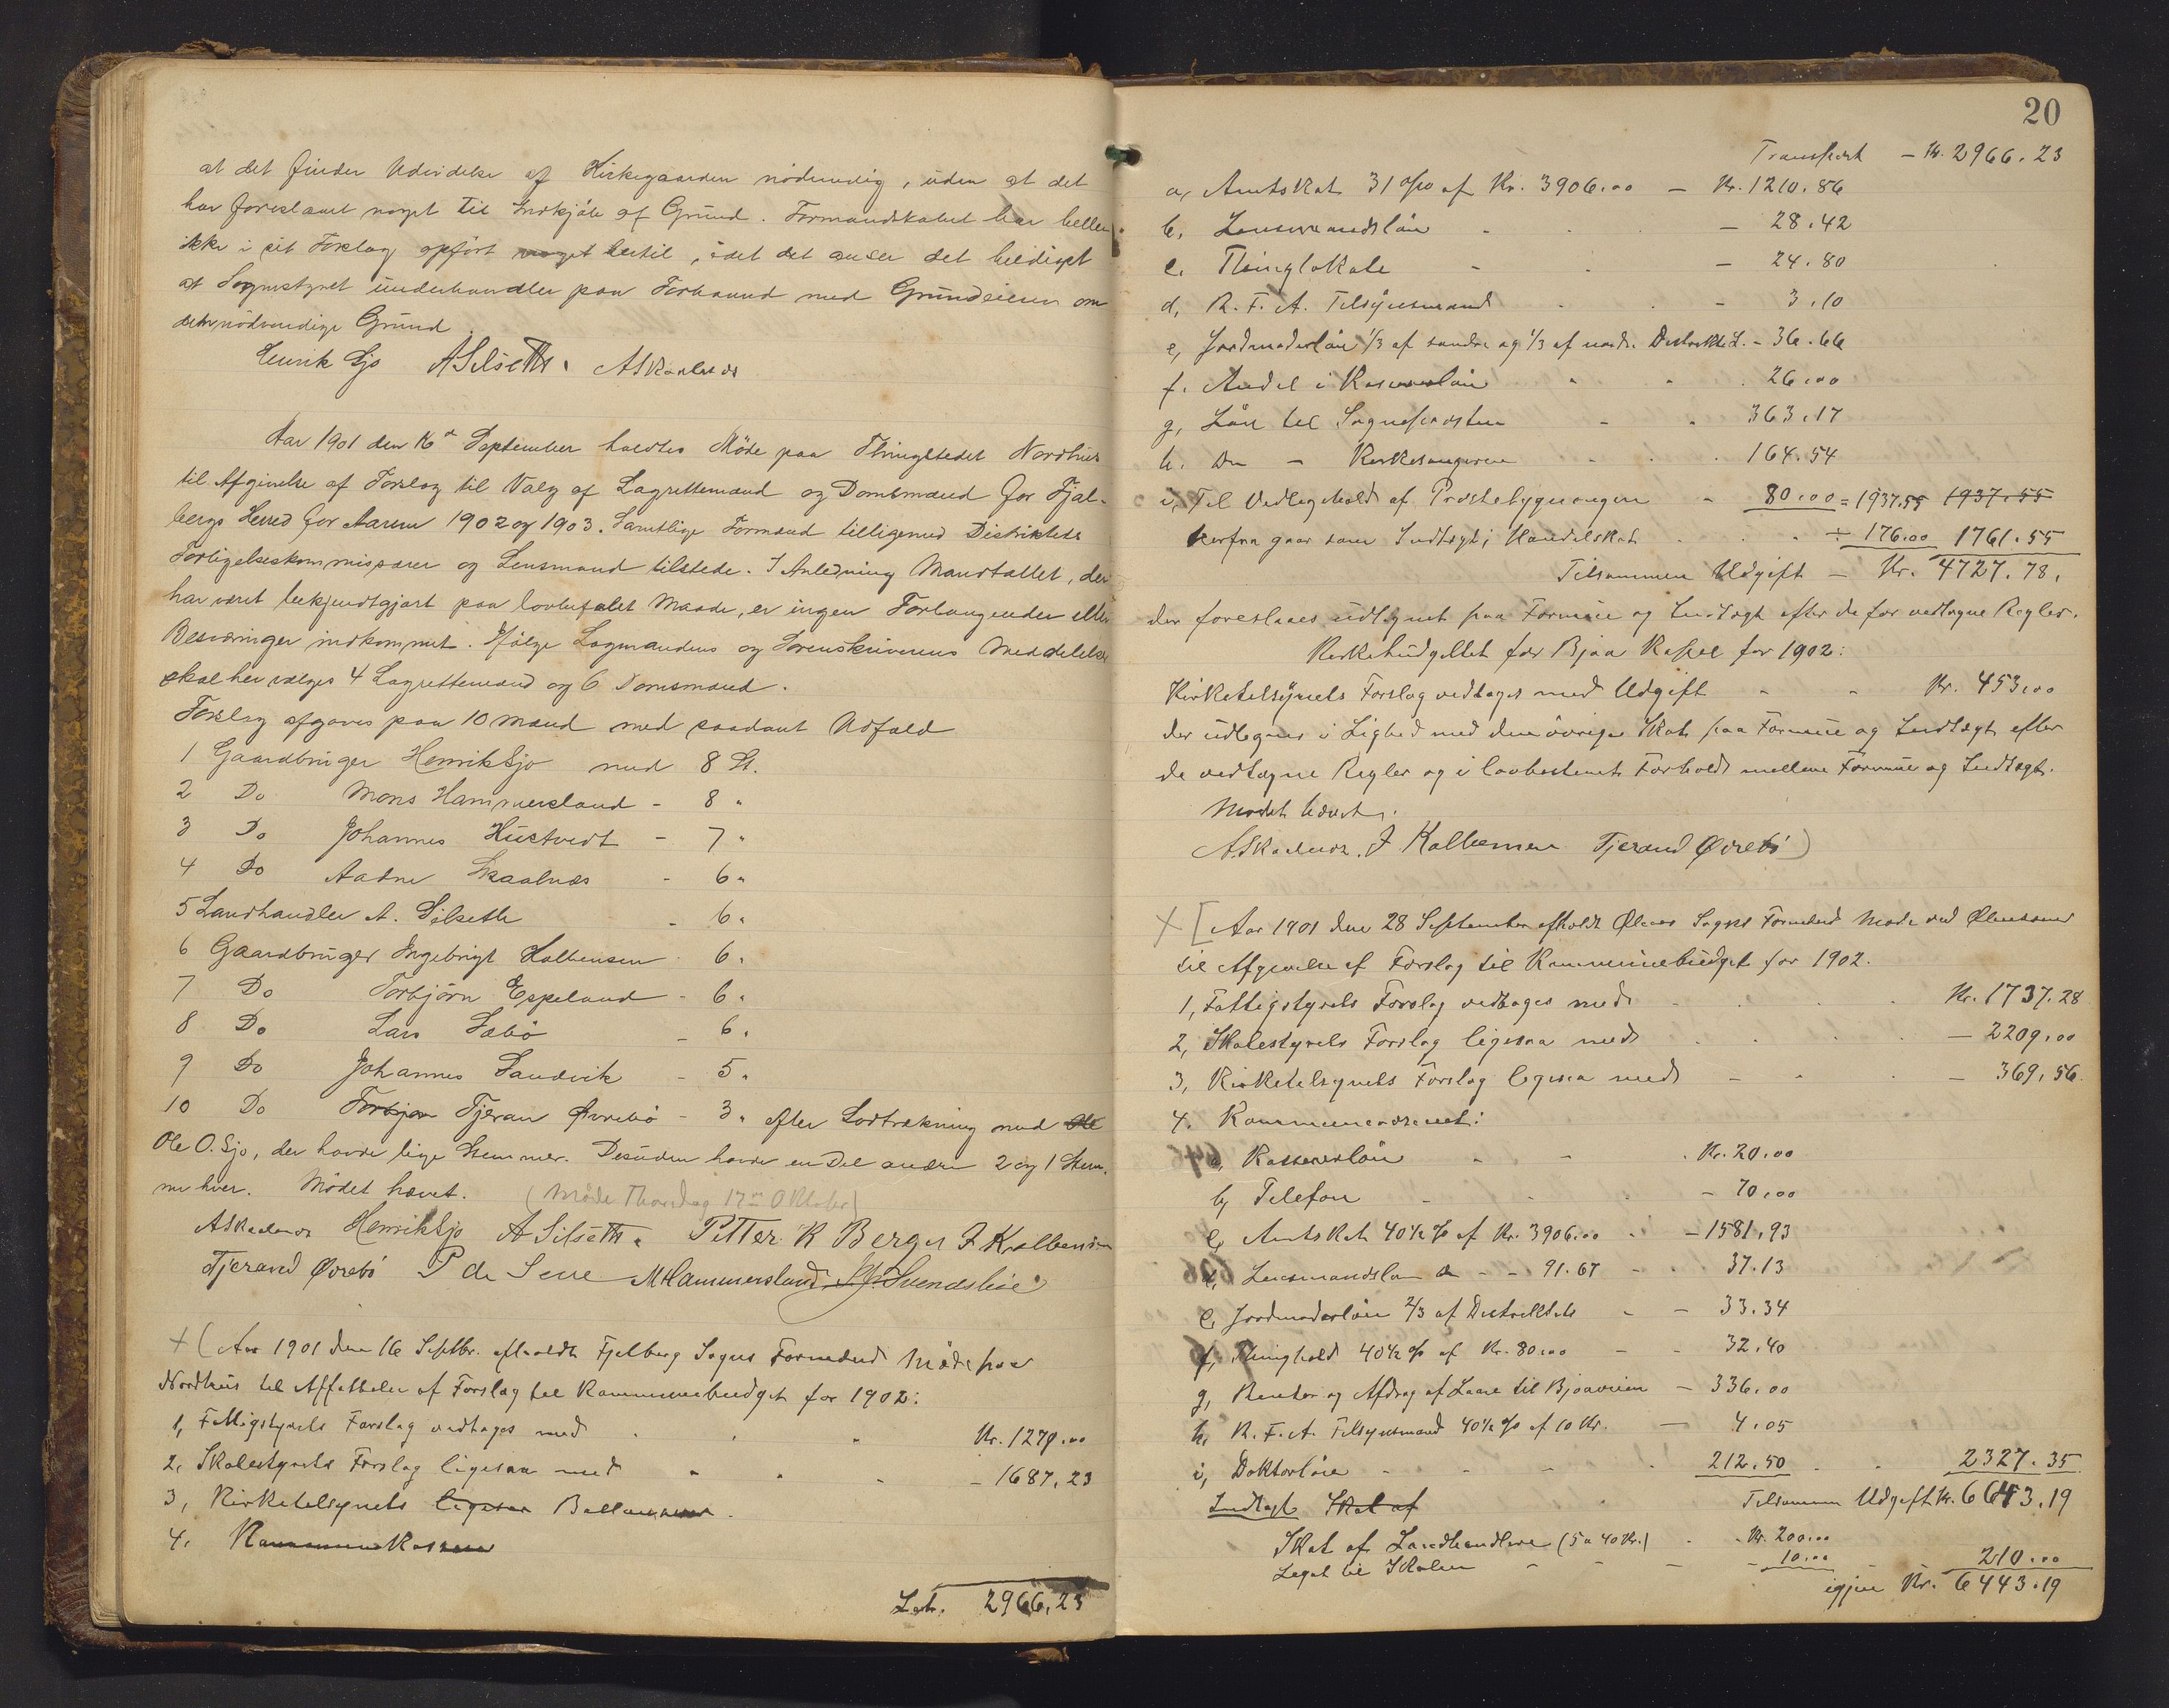 at det finder Udvidelse af Kirkegaarden nödvendig, uden at det
har foreslaaet noget til Indkjöb af Grund. Formandskabet har heller
ikke i sit Forslag opført noget hertil, idet det anser det heldigst
at Sognestyret underhandler paa Forhaand med Grundeieren om
den nödvendige Grund.
Henrik Sjo ASilseth. ASkaalnæs
Aar 1901 den 16de September holdtes Möde paa Thingstedet Nordhus
til Afgivelse af Forslag til Valg af Lagrettemænd og Domsmænd for Fjel-
bergs Herred for Aarene 1902 og 1903. Samtlige Formænd tilligemed Distriktets
Forligelseskommissærer og Lensmand tilstede. I Anledning Mandtallet, der
har været bekjendtgjort paa lovbefalet Maade, er ingen Forlangender eller
Besværinger indkommet. Ifölge Lagmandens og Sorenskriverens Meddelelse
skal her vælges 4 Lagrettemænd og 6 Domsmænd.
Forslag afgaves paa 10 Mænd med saadant Udfald
1 Gaardbruger Henrik Sjo med 8 St.
2 Do Mons Hammersland - 8 "
3 Do Johannes Hustvedt - 7 "
4 Do Aadne Skaalnæs - 6 "
5 Landhandler A. Silseth - 6 "
6 Gaardbruger Ingebrigt Kalbensen - 6 "
7 Do Torbjörn Eppeland - 6 "
8 Do Lars Sæbö - 6 "
9 Do Johannes Sandvik - 5 "
10 Do Torbjørn Tjeran Øvrebö - 3 " efter Lodtrækning med Ole
Ole O. Sjo, der havde lige Stemmer. Desuden havde en Del andre 2 og 1 Stem-
me hver. Mödet hævet. (Möde Thorsdag 17de Oktober)
ASkaalnæs Henrik Sjo A Silseth. Petter K Berge I Kalbensen
Tjerand Øvrebö P de Seve MHammersland Svendsböe
+ (Aar 1901 den 16 Septbr. afholdt Fjelberg Sogns Formænd Möde paa
Nordhus til Affattelse af Forslag til Kommunebudget for 1902:
1, Fattigstyrets Forslag vedtages med Kr. 1279.00
2, Skolestyrets Forslag ligesaa med - 1687,23
3, Kirketilsynets ligesaa Ballancerer.
4. Kommunekassen
Lat. 2966,23
20
Transport - Kr. 2966.23
a, Amtsskat 31 0/0 af Kr. 3906.00 - Kr. 1210.86
b, Lensmandslön - 28.42
c. Thinglokale - 24.80
d, R. F. A. Tilsynsmand - 3.10
e, Jordmoderlön 1/3 af søndre og 1/3 af nordr. Distrikts L. - 36.66
f. Andel i Kassererlön 26.00
g, Lön til Sognepresten 363.17
h. Do - Kirkesangeren 164.54
i, Til Vedligehold af Prestebygningen - 80.00 = 1937.55 1937.55
herfra gaar som Indtægt; Handelsskat ÷ 176.00 1761.55
Tilsammen Udgift - Kr. 4727.78.
der foreslaaes udlignet paa Formue og Indtægt efter de før vedtagne Regler.
Kirkebudgettet for Bjoa Kapel for 1902:
Kirketilsynets Forslag vedtages med Udgift - - Kr. 453.00
der udlignes i Lighed med den øvrige Skat paa Formue og Indtægt efter
de vedtagne Regler og i lovbestemt Forhold mellem Formue og Indtægt.
Mødet hævet.
ASkaalnæs. I Kalbensen Tjerand Øvrebö)
+ [Aar 1901 den 28 September afholdt Ølens Sogns Formænd Møde ved Ølensøen
til Afgivelse af Forslag til Kommunebudget for 1902.
1, Fattigstyrets Forslag vedtages med Kr. 1737.28
2, Skolestyrets Forslag ligesaa med - 2209.00
3, Kirketilsynets Forslag ligesaa med - 369,56
4. Kommunevæsenet:
a, Kassererlön Kr. 20.00
b, Telefon - 70.00
c, Amtsskat 40½ % af Kr. 3906.00 - 1581.93
d, Lensmandsløn Do - - 91.67 - 37.13
e, Jordmoderlön 2/3 af Distriktets - 33.34
f, Thinghold 40½ % af Kr. 80.00 - 32.40
g, Renter og Afdrag af Laan til Bjoaveien - 336.00
h, R. F. A. Tilsynsmand 40½ % af 10 Kr. - 4.05
i, Doktorlön 212.50 2327.35
Tilsammen Udgift Kr. 6643.19
Indtægt Skat af
Skat af Landhandlere (5 a 40 Kr.) Kr. 200.00
Legat til Skolen - 10.00 210.00
igjen Kr. 6443.19